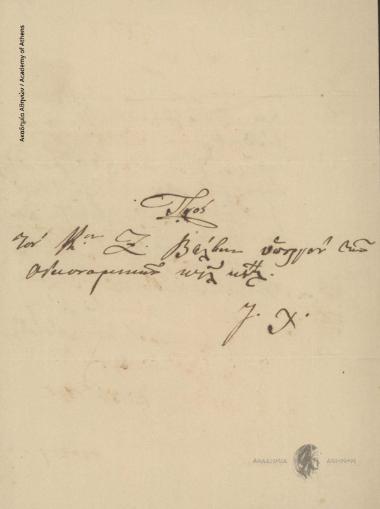 Ακαδημία Αθηνών / Academy of Athens
Πρὸς
τὸν Κον Ζ. Βάλβην ὑπουργὸν τῆς
Οἰκονομικῆς
ΑΚΑΔΗΜΙΑ ΑΘΗΝΩΝ